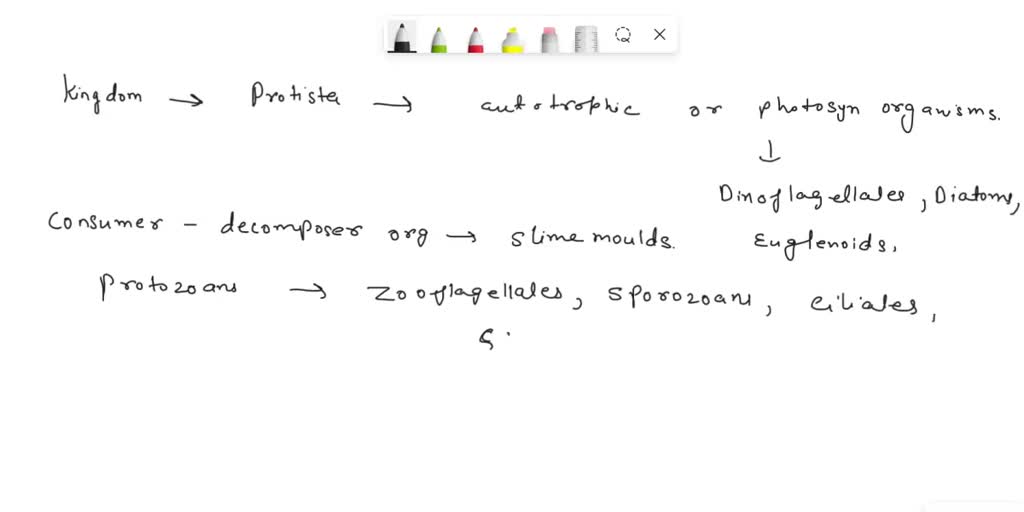 Kingdom → Protista → autotrophic or photosyn organisms.
↓
Dinoflagellates, Diatoms,
Consumer - decomposer org → slime moulds. Euglenoids,
Protozoans → Zooflagellates, Sporozoans, ciliates,
S